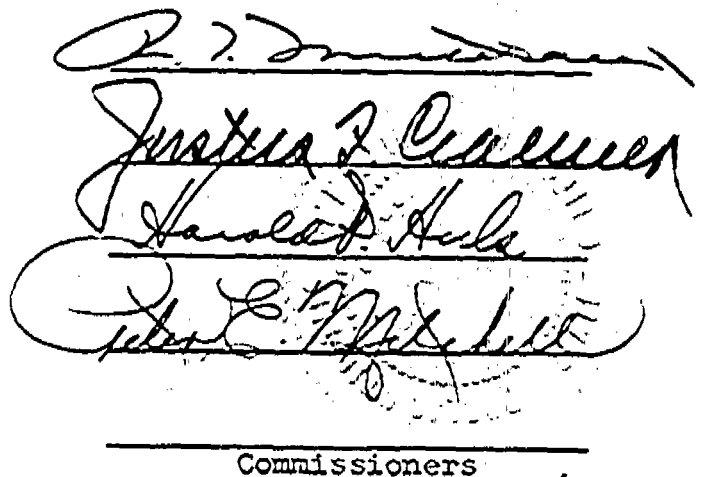 Justus F. Craemer
Harold P. Huls
Peter E. Mitchell
Commissioners